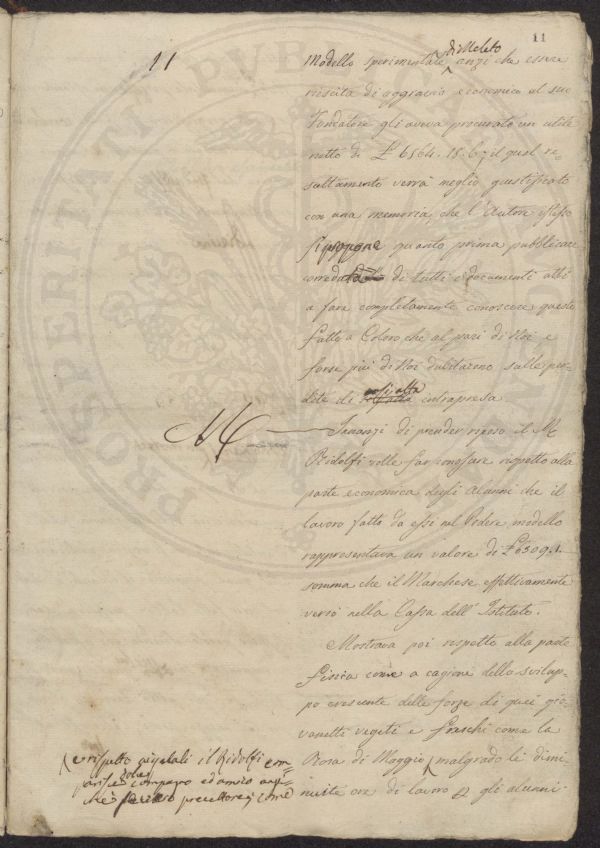 11
11
Modello sperimentale di Meleto anzi che essere
riescita di aggravio economico al suo
Fondatore gli aveva procurato un utile
netto di £ 6564. 15. 6; il qual re
sultamento verrà meglio giustificato
con una memoria, che l'Autore istesso
si propone quanto prima pubblicare
corredata di tutti i documenti atti
a fare completamente conoscere questo
fatto a Coloro che al pari di Noi e
forse più di Noi dubitarono sulle per
dite di sì alta intrapresa.
Innanzi di prender riposo il M.
Ridolfi volle far conoscere rispetto alla
parte economica degli Alunni che il
lavoro fatto da essi nel Podere modello
rappresentava un valore di £ 6509. 1.
somma che il Marchese effettivamente
versò nella Cassa dell' Istituto.
Mostrava poi rispetto alla parte
fisica come a cagione dello svilup
po crescente delle forze di quei gio
vanetti vegeti e freschi come la
Rosa di Maggio malgrado le dimi
nuite ore di lavoro gli alunni
e rispetto ai quali il Ridolfi com
parisce compagno ed amico anzi
chè precettore; come
PROSPERITATI PUBLICAE